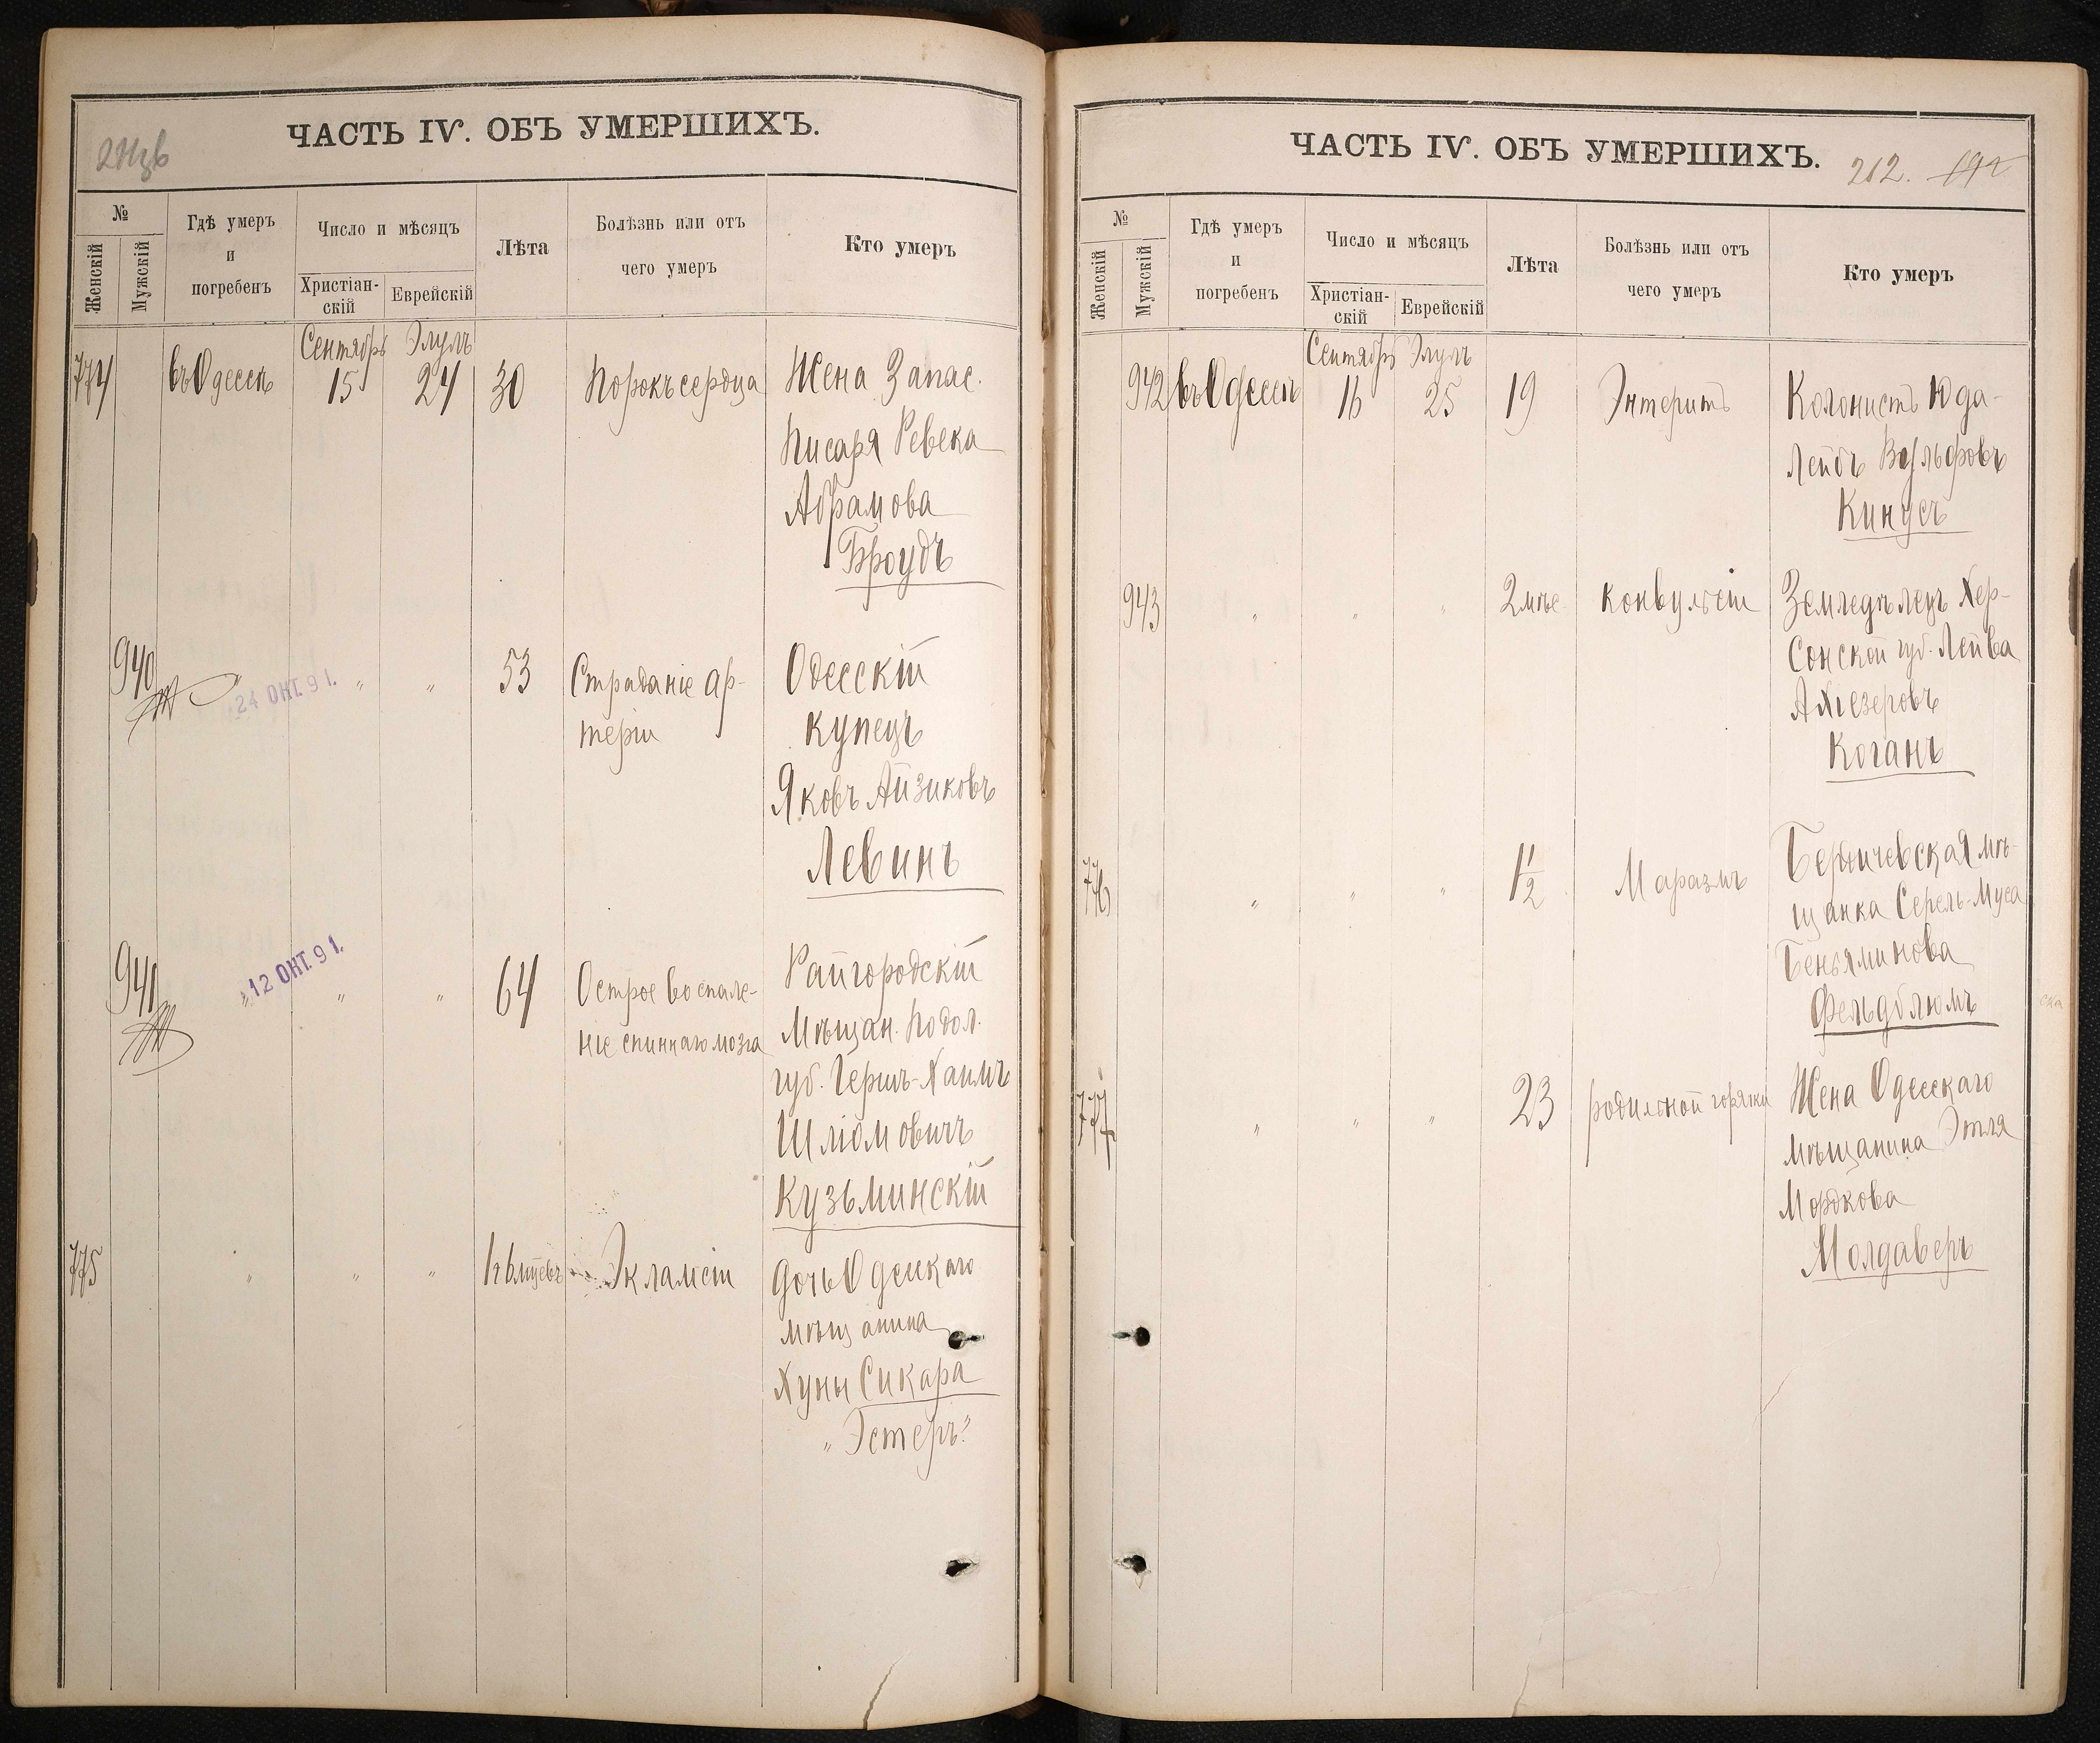 ЧАСТЬ IV. ОБЪ УМЕРШИХЪ.
№
Женскій
Мужскій
Гдѣ умеръ
и
погребенъ
Число и мѣсяцъ
Христіан-
скій
Еврейскій
Лѣта
Болѣзнь или отъ
чего умеръ
Кто умеръ
Сентябрь Элулъ
774 въ Одессѣ 15 24 30 Порокъ сердца Жена Запас.
Писаря Ревека
Абрамова
Броудъ
940 " 24 ОКТ. 91. " " 53 Страданіе ар-
теріи
Одесскій
купецъ
Яковъ Айзиковъ
Левинъ
941 " 12 ОКТ. 91. " " 64 Острое воспале-
ніе спиннаго мозга
Райгородскій
Мѣщан. Подол.
губ. Гершъ-Хаимъ
Шліомовичъ
Кузьминскій
775 " " " Экламсіи
Дочь Одесскаго
мѣщанина
Хуны Сикара
"Эстеръ"
ЧАСТЬ IV. ОБЪ УМЕРШИХЪ.
212.
№
Женскій
Мужскій
Гдѣ умеръ
и
погребенъ
Число и мѣсяцъ
Христіан-
скій
Еврейскій
Лѣта
Болѣзнь или отъ
чего умеръ
Кто умеръ
Сентябрь Элулъ
942 въ Одессѣ 16 25 19 Энтеритъ Колонистъ Юда-
Лейбъ Вульфовъ
Кинусъ
943 " " " 2 мѣс. Конвульсіи Земледѣлецъ Хер-
сонской губ. Лейва
Ахіезеровъ
Коганъ
776 " " " 1 1/2 Маразмъ Бердичевская мѣ-
щанка Серель-Муса
Беньяминова
Фельдблюмъ
777 " " " 23 родильной горячки Жена Одесскаго
мѣщанина Этля
Мордкова
Молдаверъ